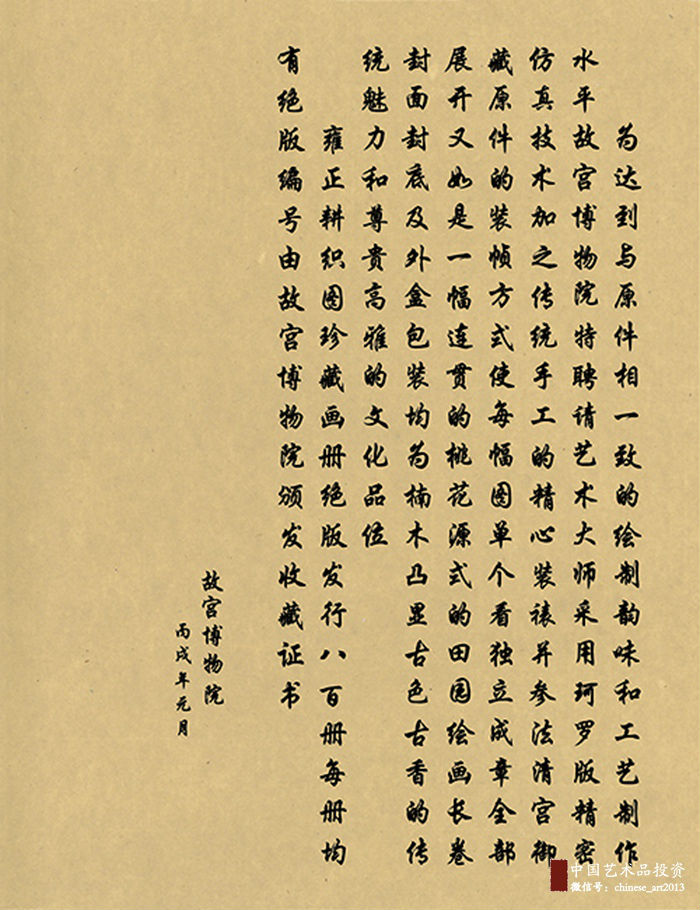 为达到与原件相一致的绘制韵味和工艺制作
水平故宫博物院特聘请艺术大师采用珂罗版精密
仿真技术加之传统手工的精心装裱并参法清宫御
藏原件的装帧方式使每幅图单个看独立成章全部
展开又如是一幅连贯的桃花源式的田园绘画长卷
封面封底及外盒包装均为楠木凸显古色古香的传
统魅力和尊贵高雅的文化品位
雍正耕织图珍藏画册绝版发行八百册每册均
有绝版编号由故宫博物院颁发收藏证书
故宫博物院
丙戌年元月
中国艺术品投资
微信号：chinese_art2013